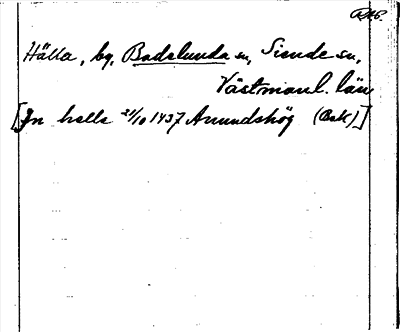 Hälla, by, Badelunda sn, Siende sn,
Västmanl. län
[Jn halla 21/10 1437 Anundshög (Ask)]